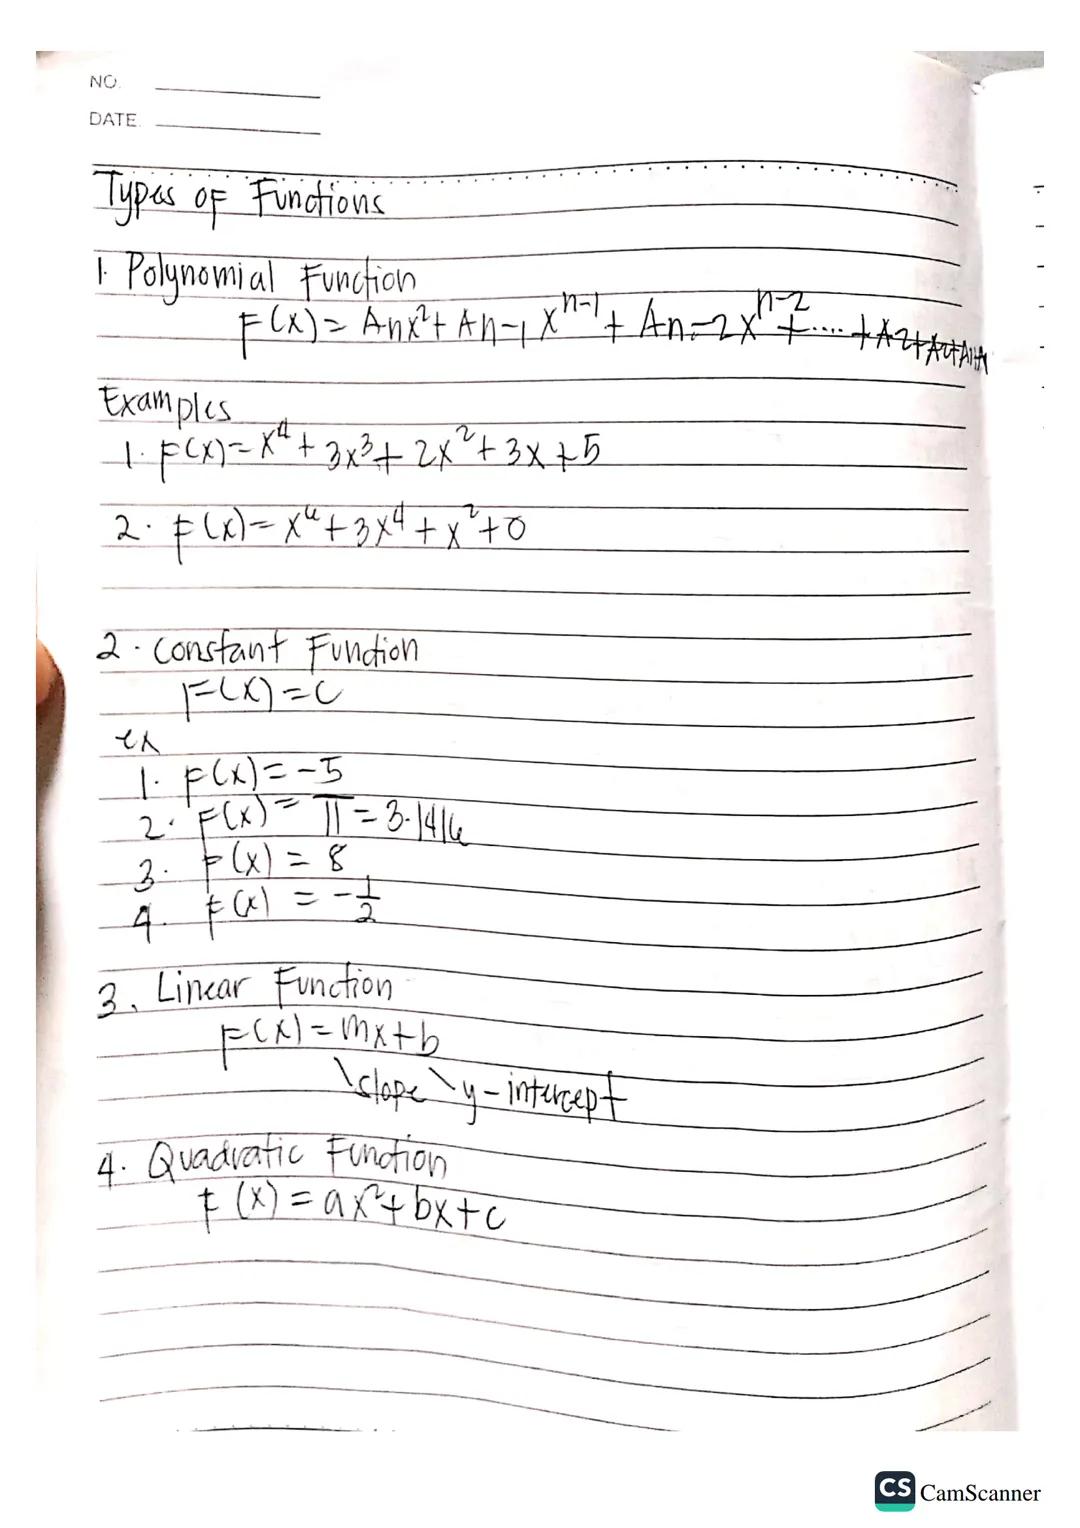 NO.
DATE.
Types of Functions
1. Polynomial Function
F(x) = Anx² + An-1 x^n-1 + An-2 x^n-2 + .... + A2+
Examples
1. F(x) = x⁴ + 3x³ + 2x² + 3x + 5
2. F(x) = x⁶ + 3x⁴ + x² + 0
2. Constant Function
F(x) = c
ex
1. F(x) = -5
2. F(x) = π = 3.1416
3. F(x) = 8
4. F(x) = -1/2
3. Linear Function
F(x) = mx+b
\slope \y-intercept
4. Quadratic Function
F(x) = ax² + bx + c
CS CamScanner